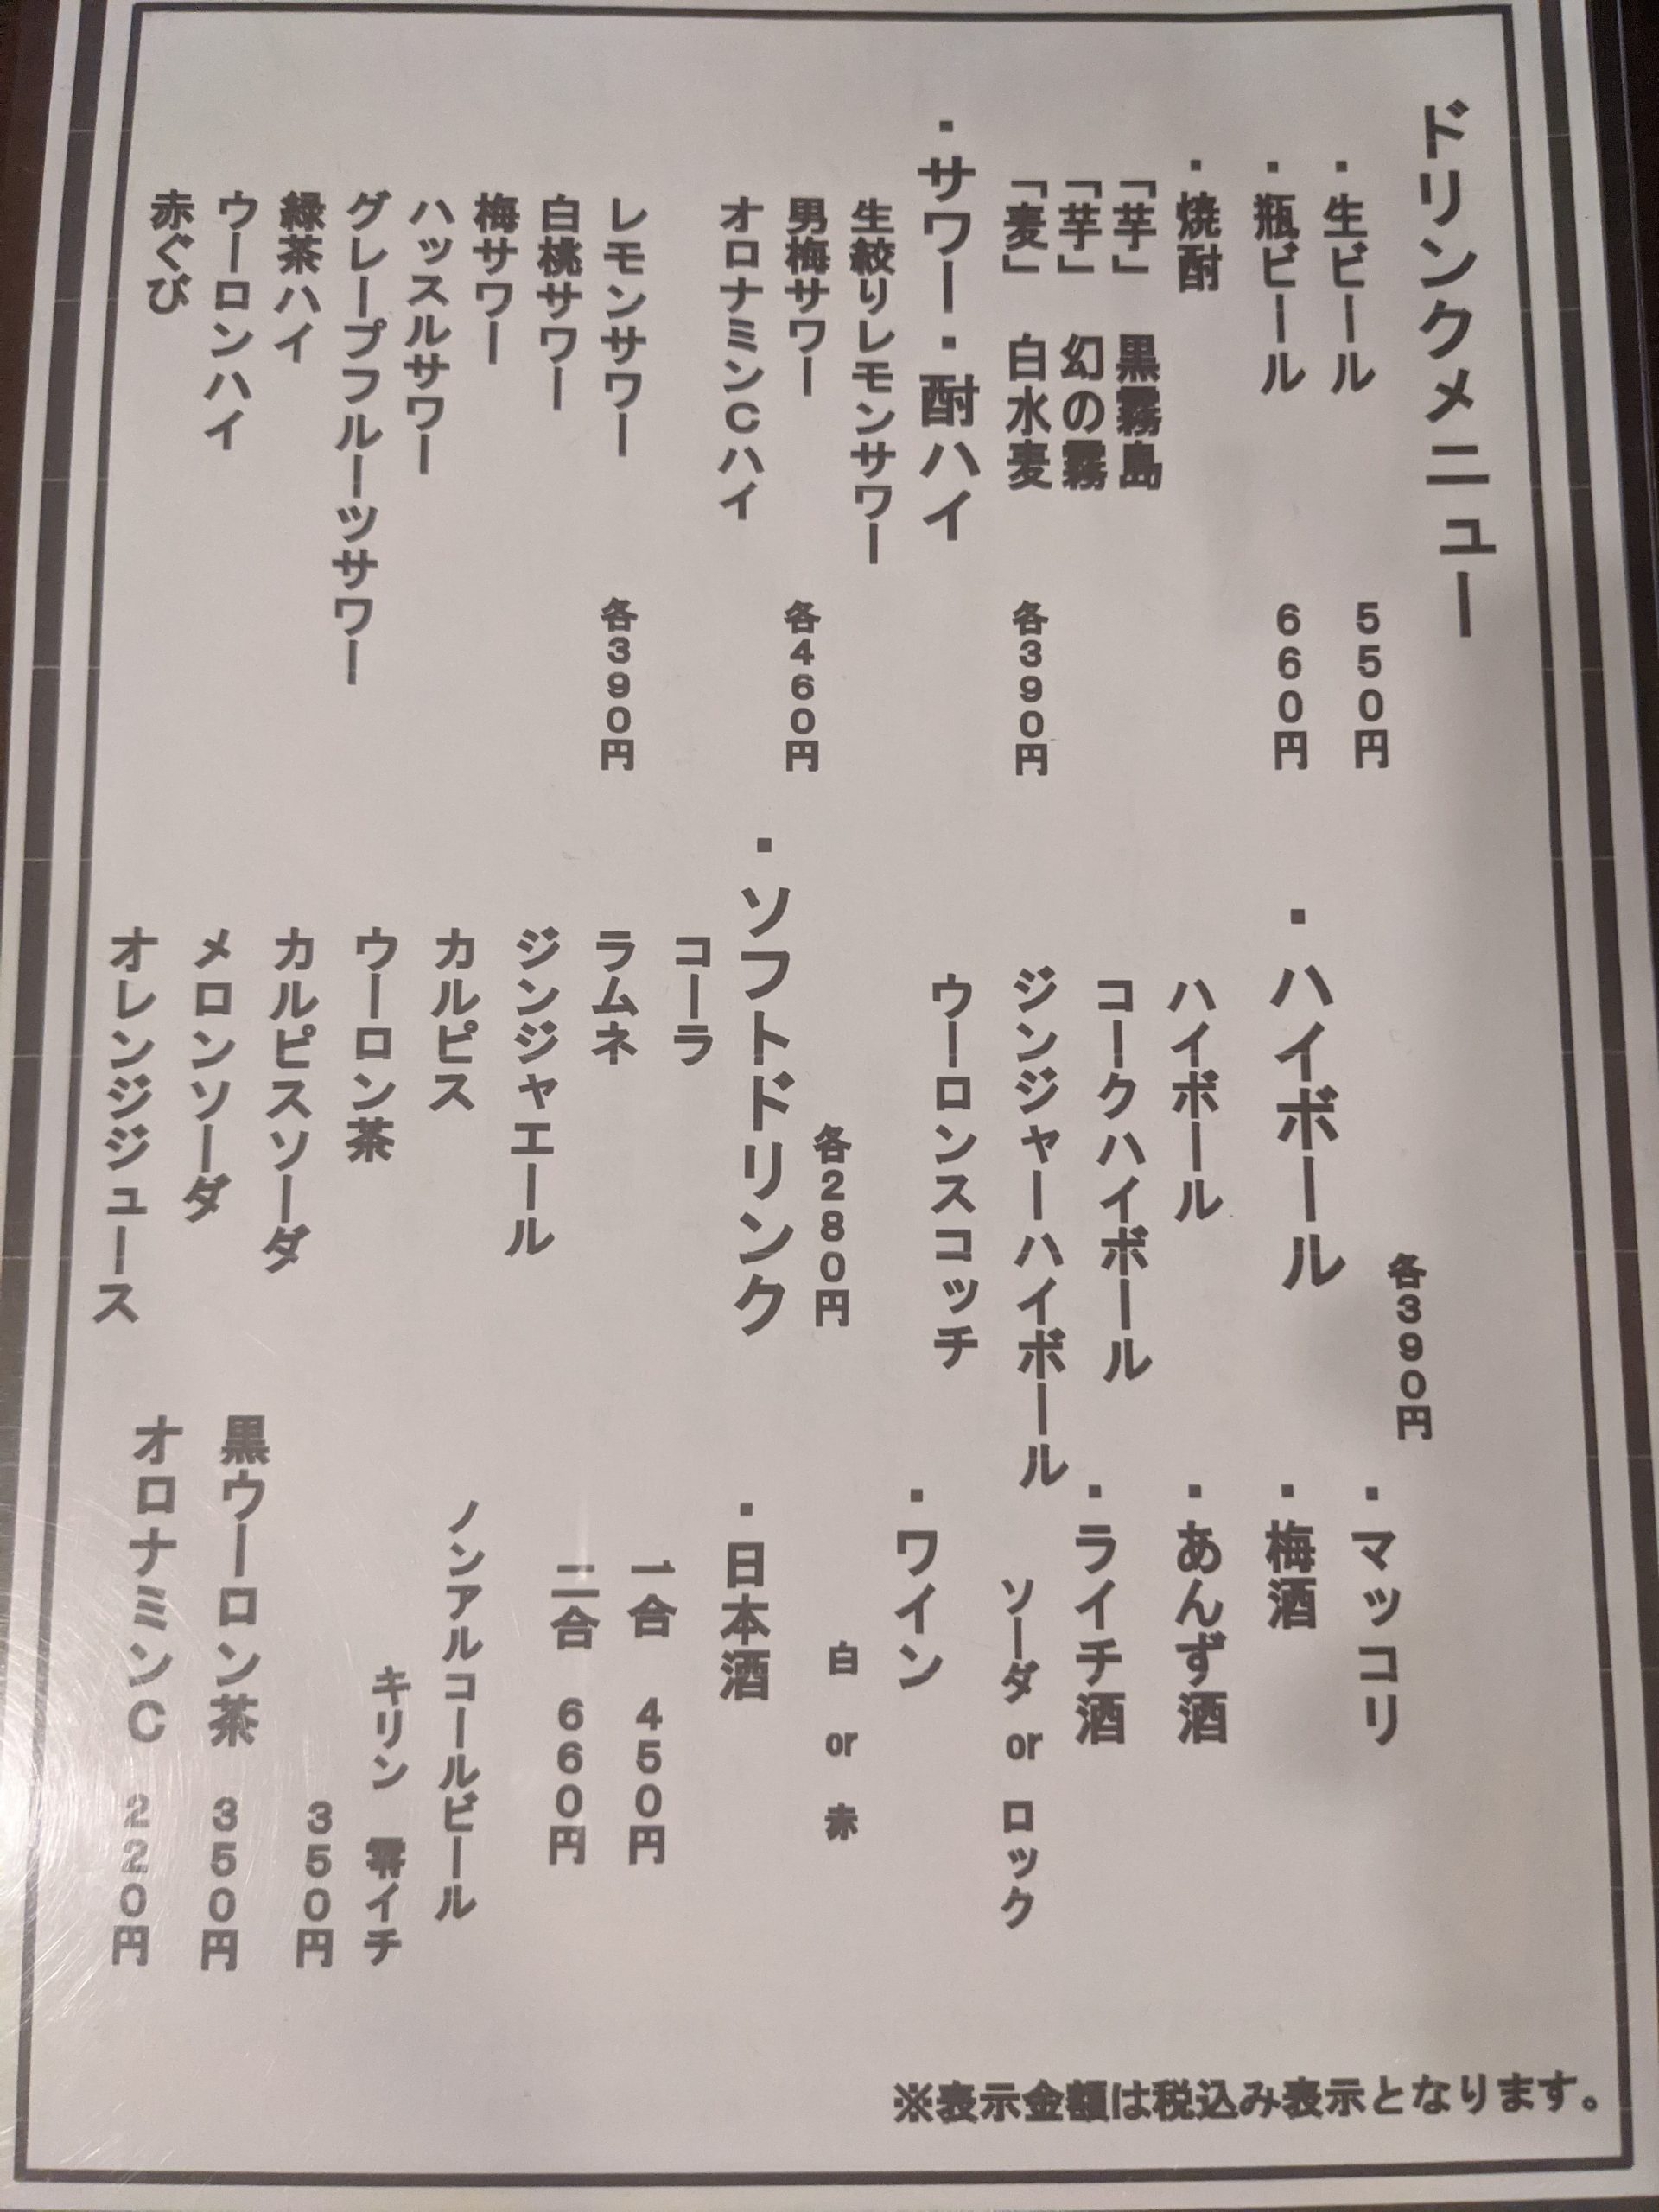 ドリンクメニュー
・生ビール 550円
・瓶ビール 660円
・焼酎
「芋」 黒霧島
「芋」 幻の霧
「麦」 白水麦 各390円
・サワー・酎ハイ
生絞りレモンサワー
男梅サワー 各460円
オロナミンCハイ
レモンサワー 各390円
白桃サワー
梅サワー
ハッスルサワー
グレープフルーツサワー
緑茶ハイ
ウーロンハイ
赤ぐび
各390円
・ハイボール
ハイボール
コークハイボール
ジンジャーハイボール
ウーロンスコッチ
各280円
・ソフトドリンク
コーラ
ラムネ
ジンジャエール
カルピス
ウーロン茶
カルピスソーダ
メロンソーダ
オレンジジュース
・マッコリ
・梅酒
・あんず酒
・ライチ酒
ソーダ or ロック
・ワイン
白 or 赤
・日本酒
一合 450円
二合 660円
ノンアルコールビール
キリン 零イチ
350円
黒ウーロン茶 350円
オロナミンC 220円
※表示金額は税込み表示となります。